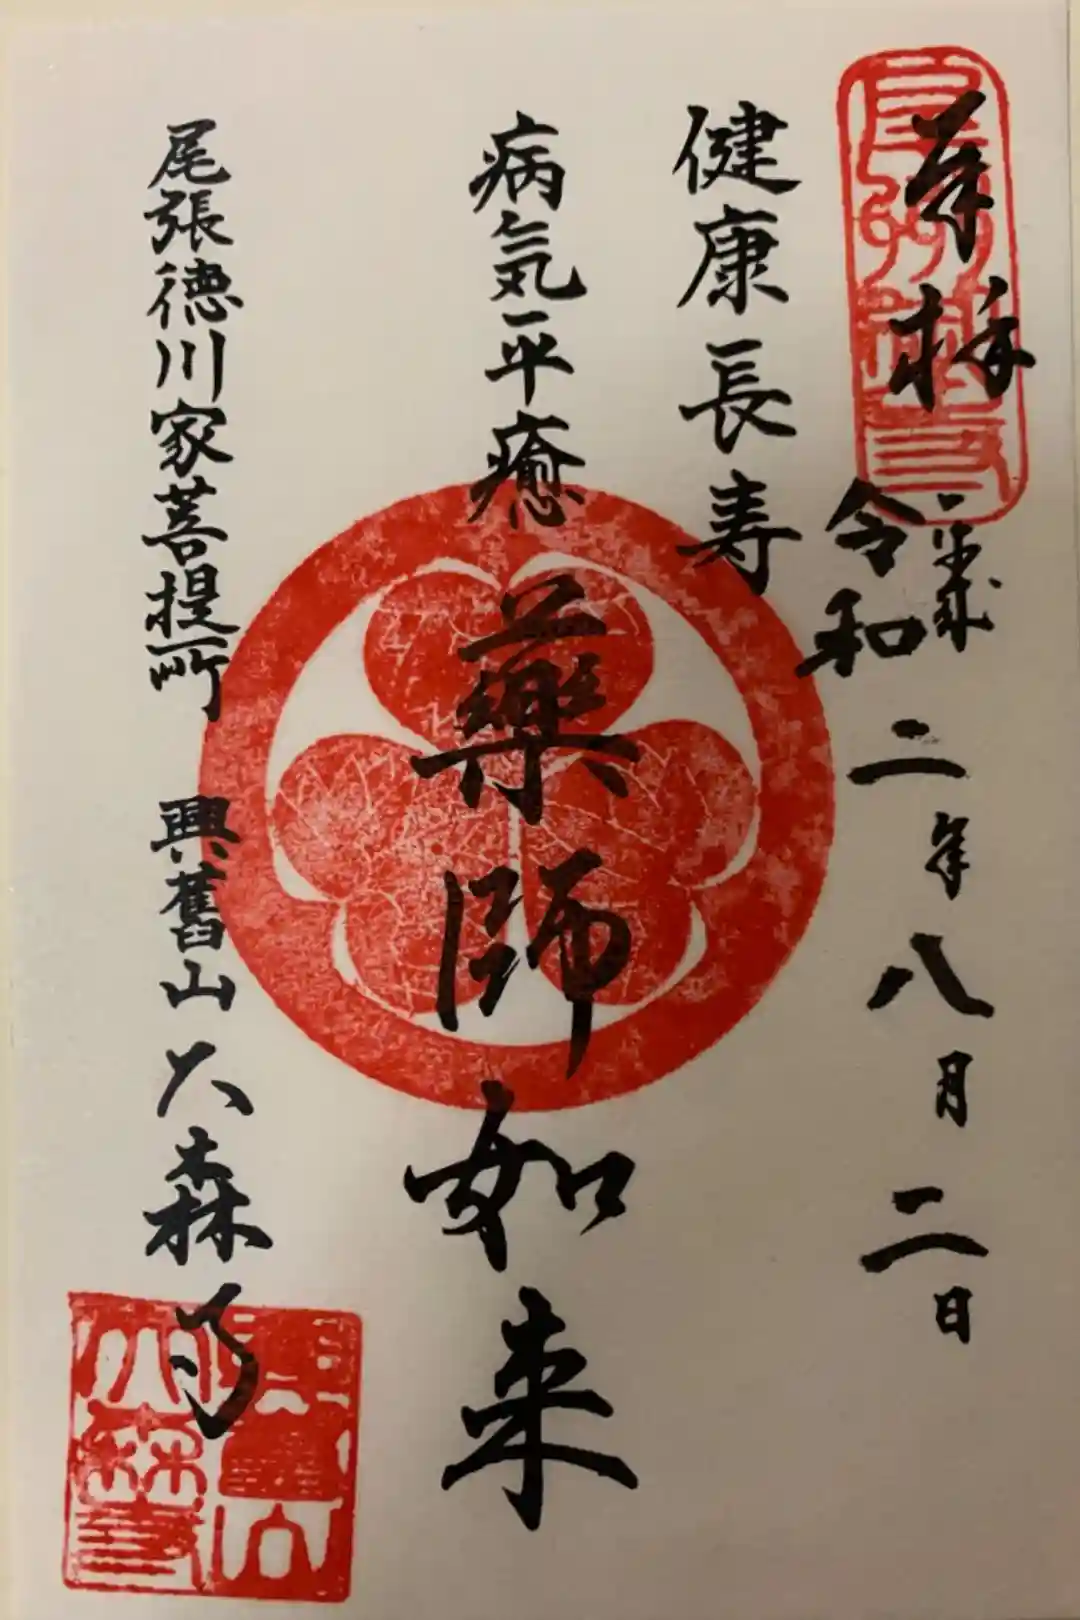 奉拝
令和二年八月二日
健康長寿
病気平癒
藥師如来
尾張徳川家菩提所 興舊山 大森寺
興舊山
大森寺